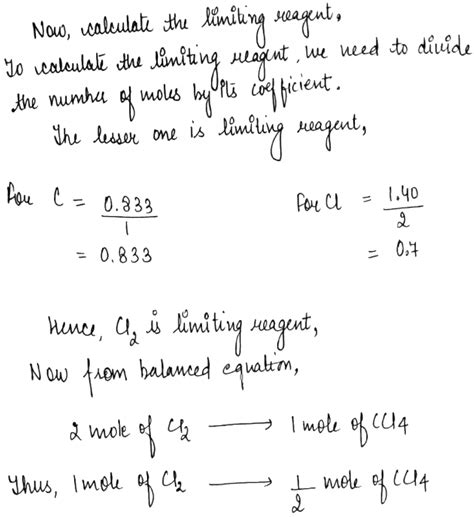 Now, calculate the limiting reagent,
To calculate the limiting reagent, we need to divide
the number of moles by its coefficient.
The lesser one is limiting reagent,
For C = 0.833 / 1 For Cl = 1.40 / 2
= 0.833 = 0.7
Hence, Cl₂ is limiting reagent,
Now from balanced equation,
2 mole of Cl₂ ⟶ 1 mole of CCl4
Thus, 1 mole of Cl₂ ⟶ 1/2 mole of CCl4